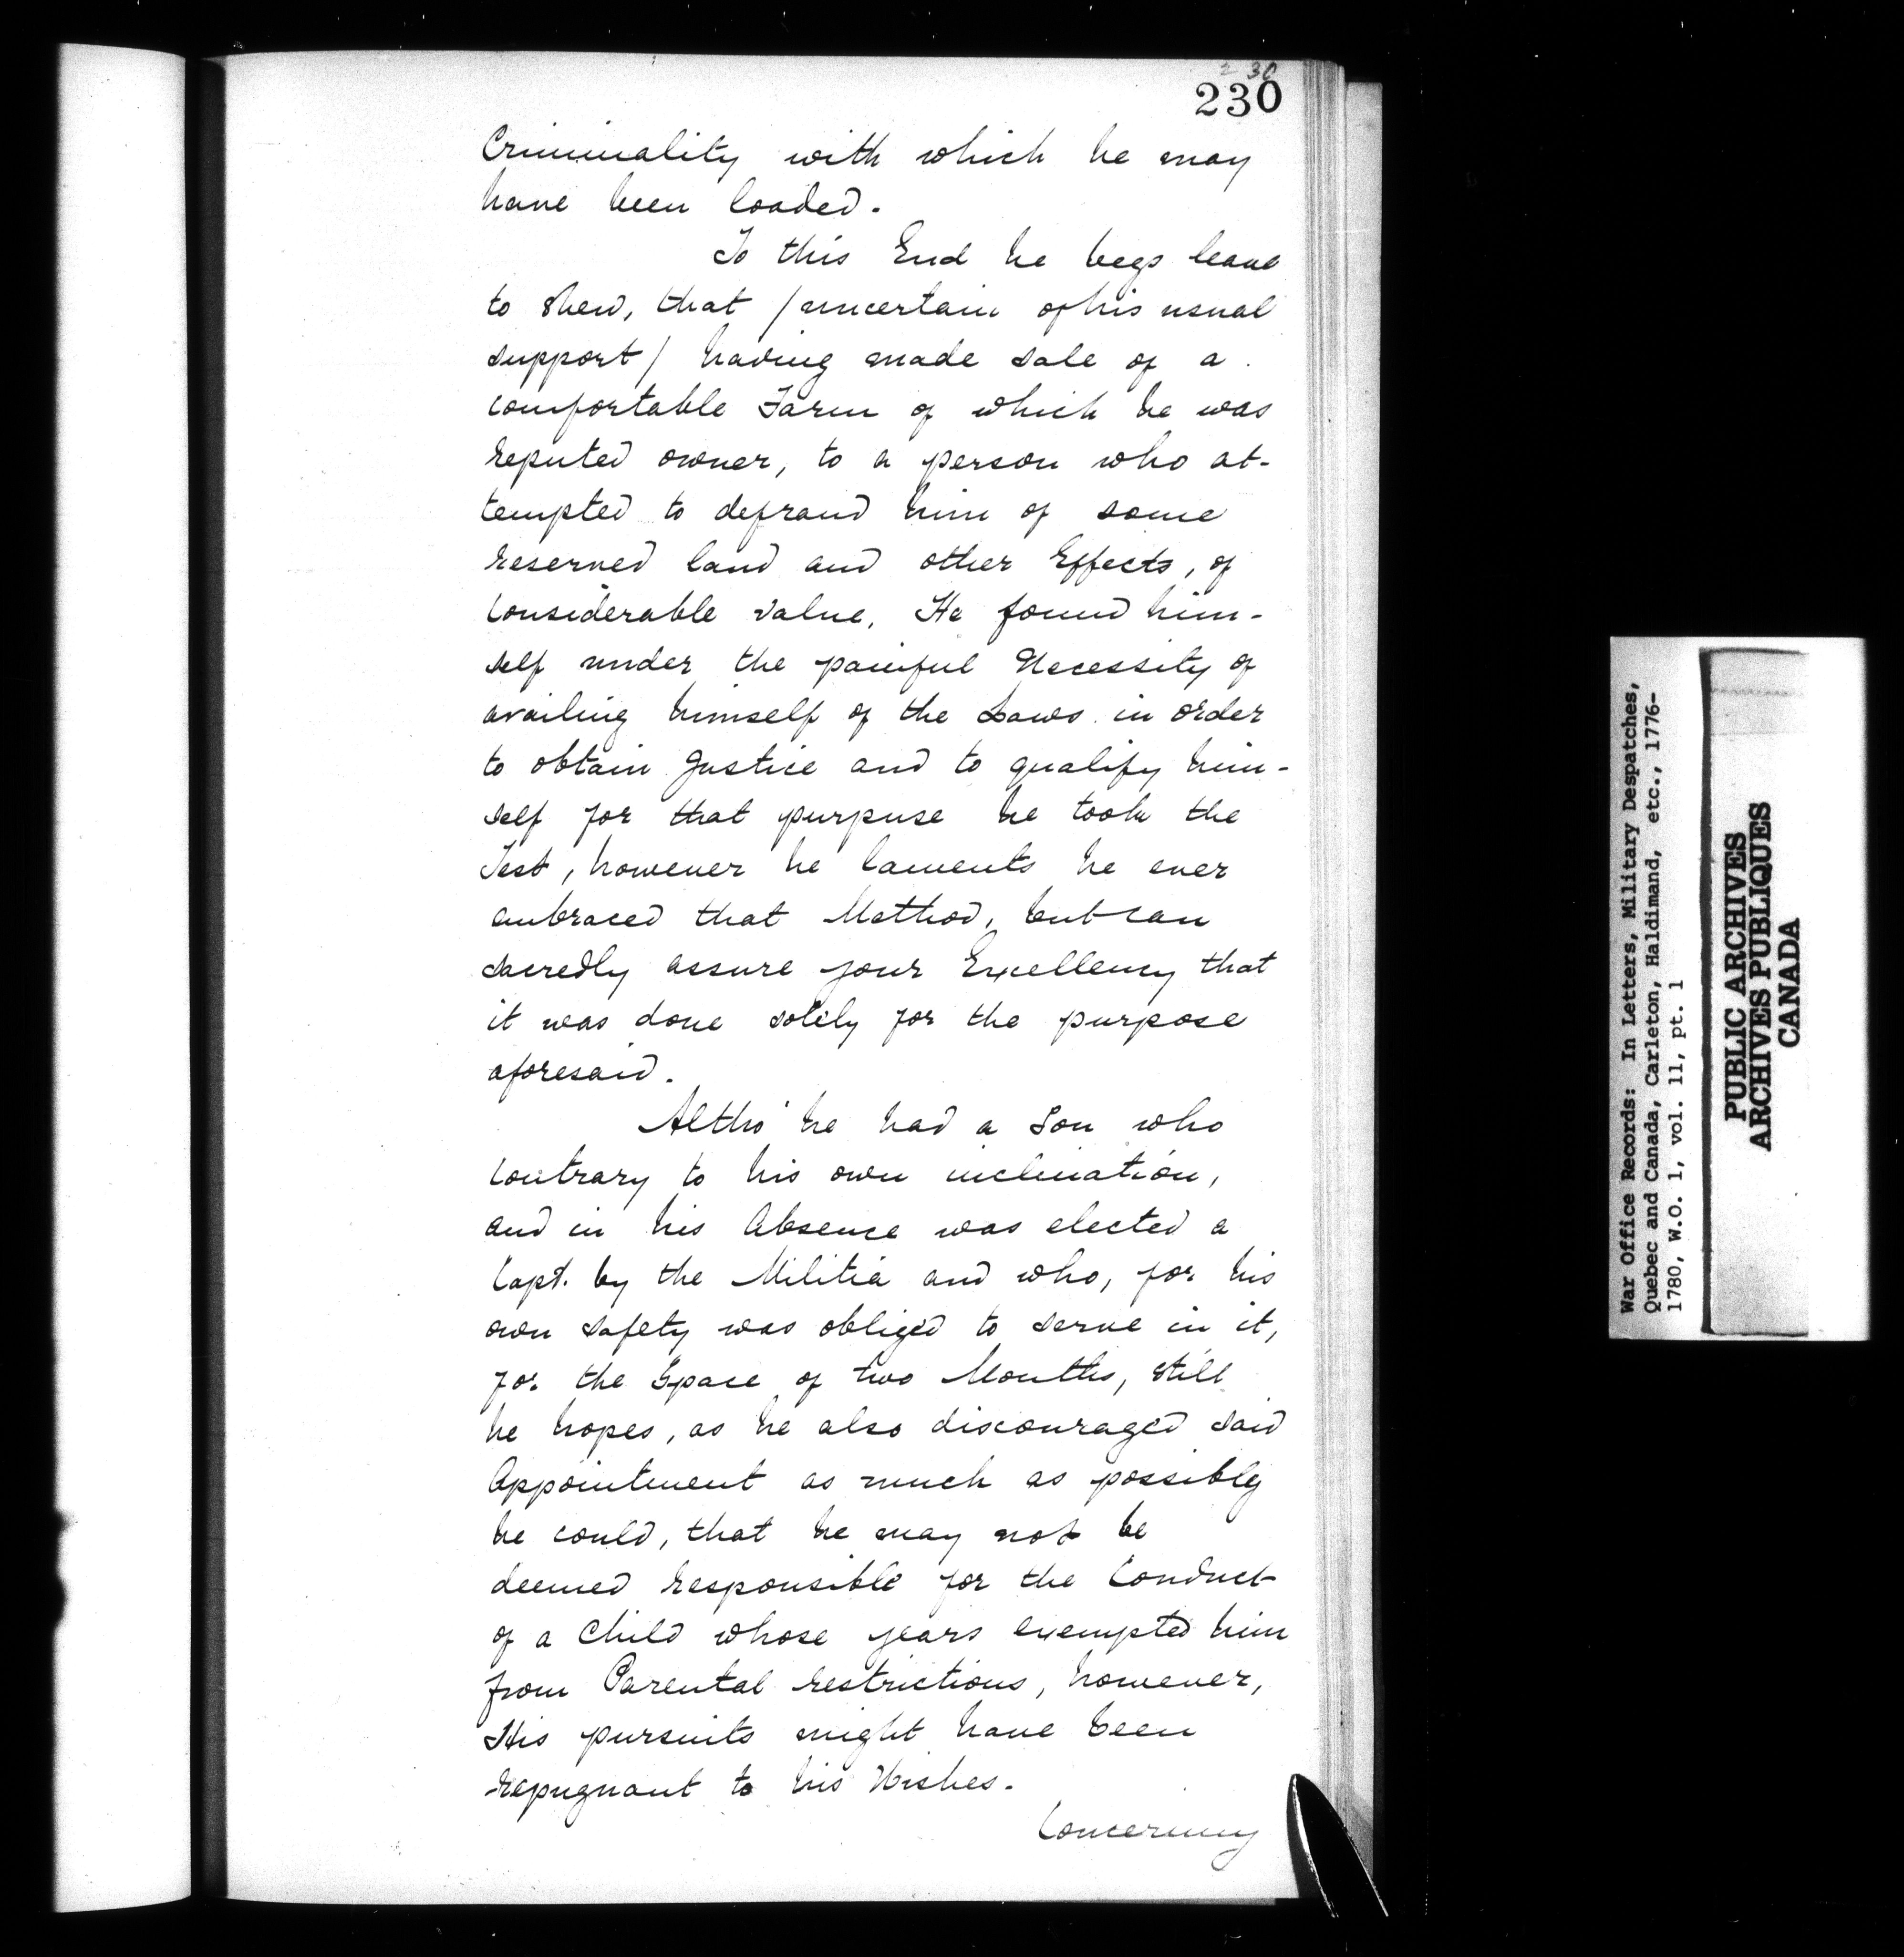 230
230
Criminality with which he may
have been loaded.
To this End he begs leave
to shew, that / uncertain of his usual
support / having made sale of a
comfortable Farm of which he was
reputed owner, to a person who at-
tempted to defraud him of some
reserved land and other Effects, of
Considerable value, He found him-
self under the painful Necessity of
availing himself of the Laws in order
to obtain Justice and to qualify him-
self for that purpuse he took the
Test, however he laments he ever
embraced that Method, but can
sacredly assure your Excellency that
it was done solely for the purpose
aforesaid.
Altho' he had a Son who
contrary to his own inclination,
and in his Absence was elected a
Capt. by the Militia and who, for his
own safety was obliged to serve in it,
for the Space of two Months, still
he hopes, as he also discouraged said
Appointment as much as possibly
he could, that he may not be
deemed responsible for the Conduct
of a Child whose years exempted him
from Parental restrictions, however,
His pursuits might have been
repugnant to his Wishes.
Concerning
War Office Records: In Letters, Military Despatches,
Quebec and Canada, Carleton, Haldimand, etc., 1776-
1780, W.O. 1, vol. 11, pt. 1
PUBLIC ARCHIVES
ARCHIVES PUBLIQUES
CANADA